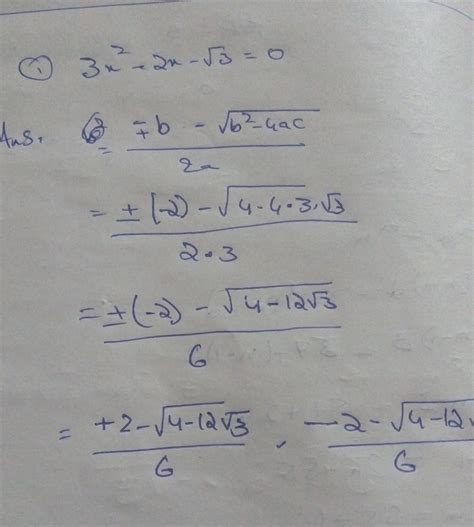 ① 3x² - 2x - √3 = 0
Ans.
= ∓b - √b²-4ac / 2a
= ±(-2) - √4-4•3•√3 / 2•3
= ±(-2) - √4-12√3 / 6
= +2-√4-12√3 / 6 , -2-√4-12√ / 6